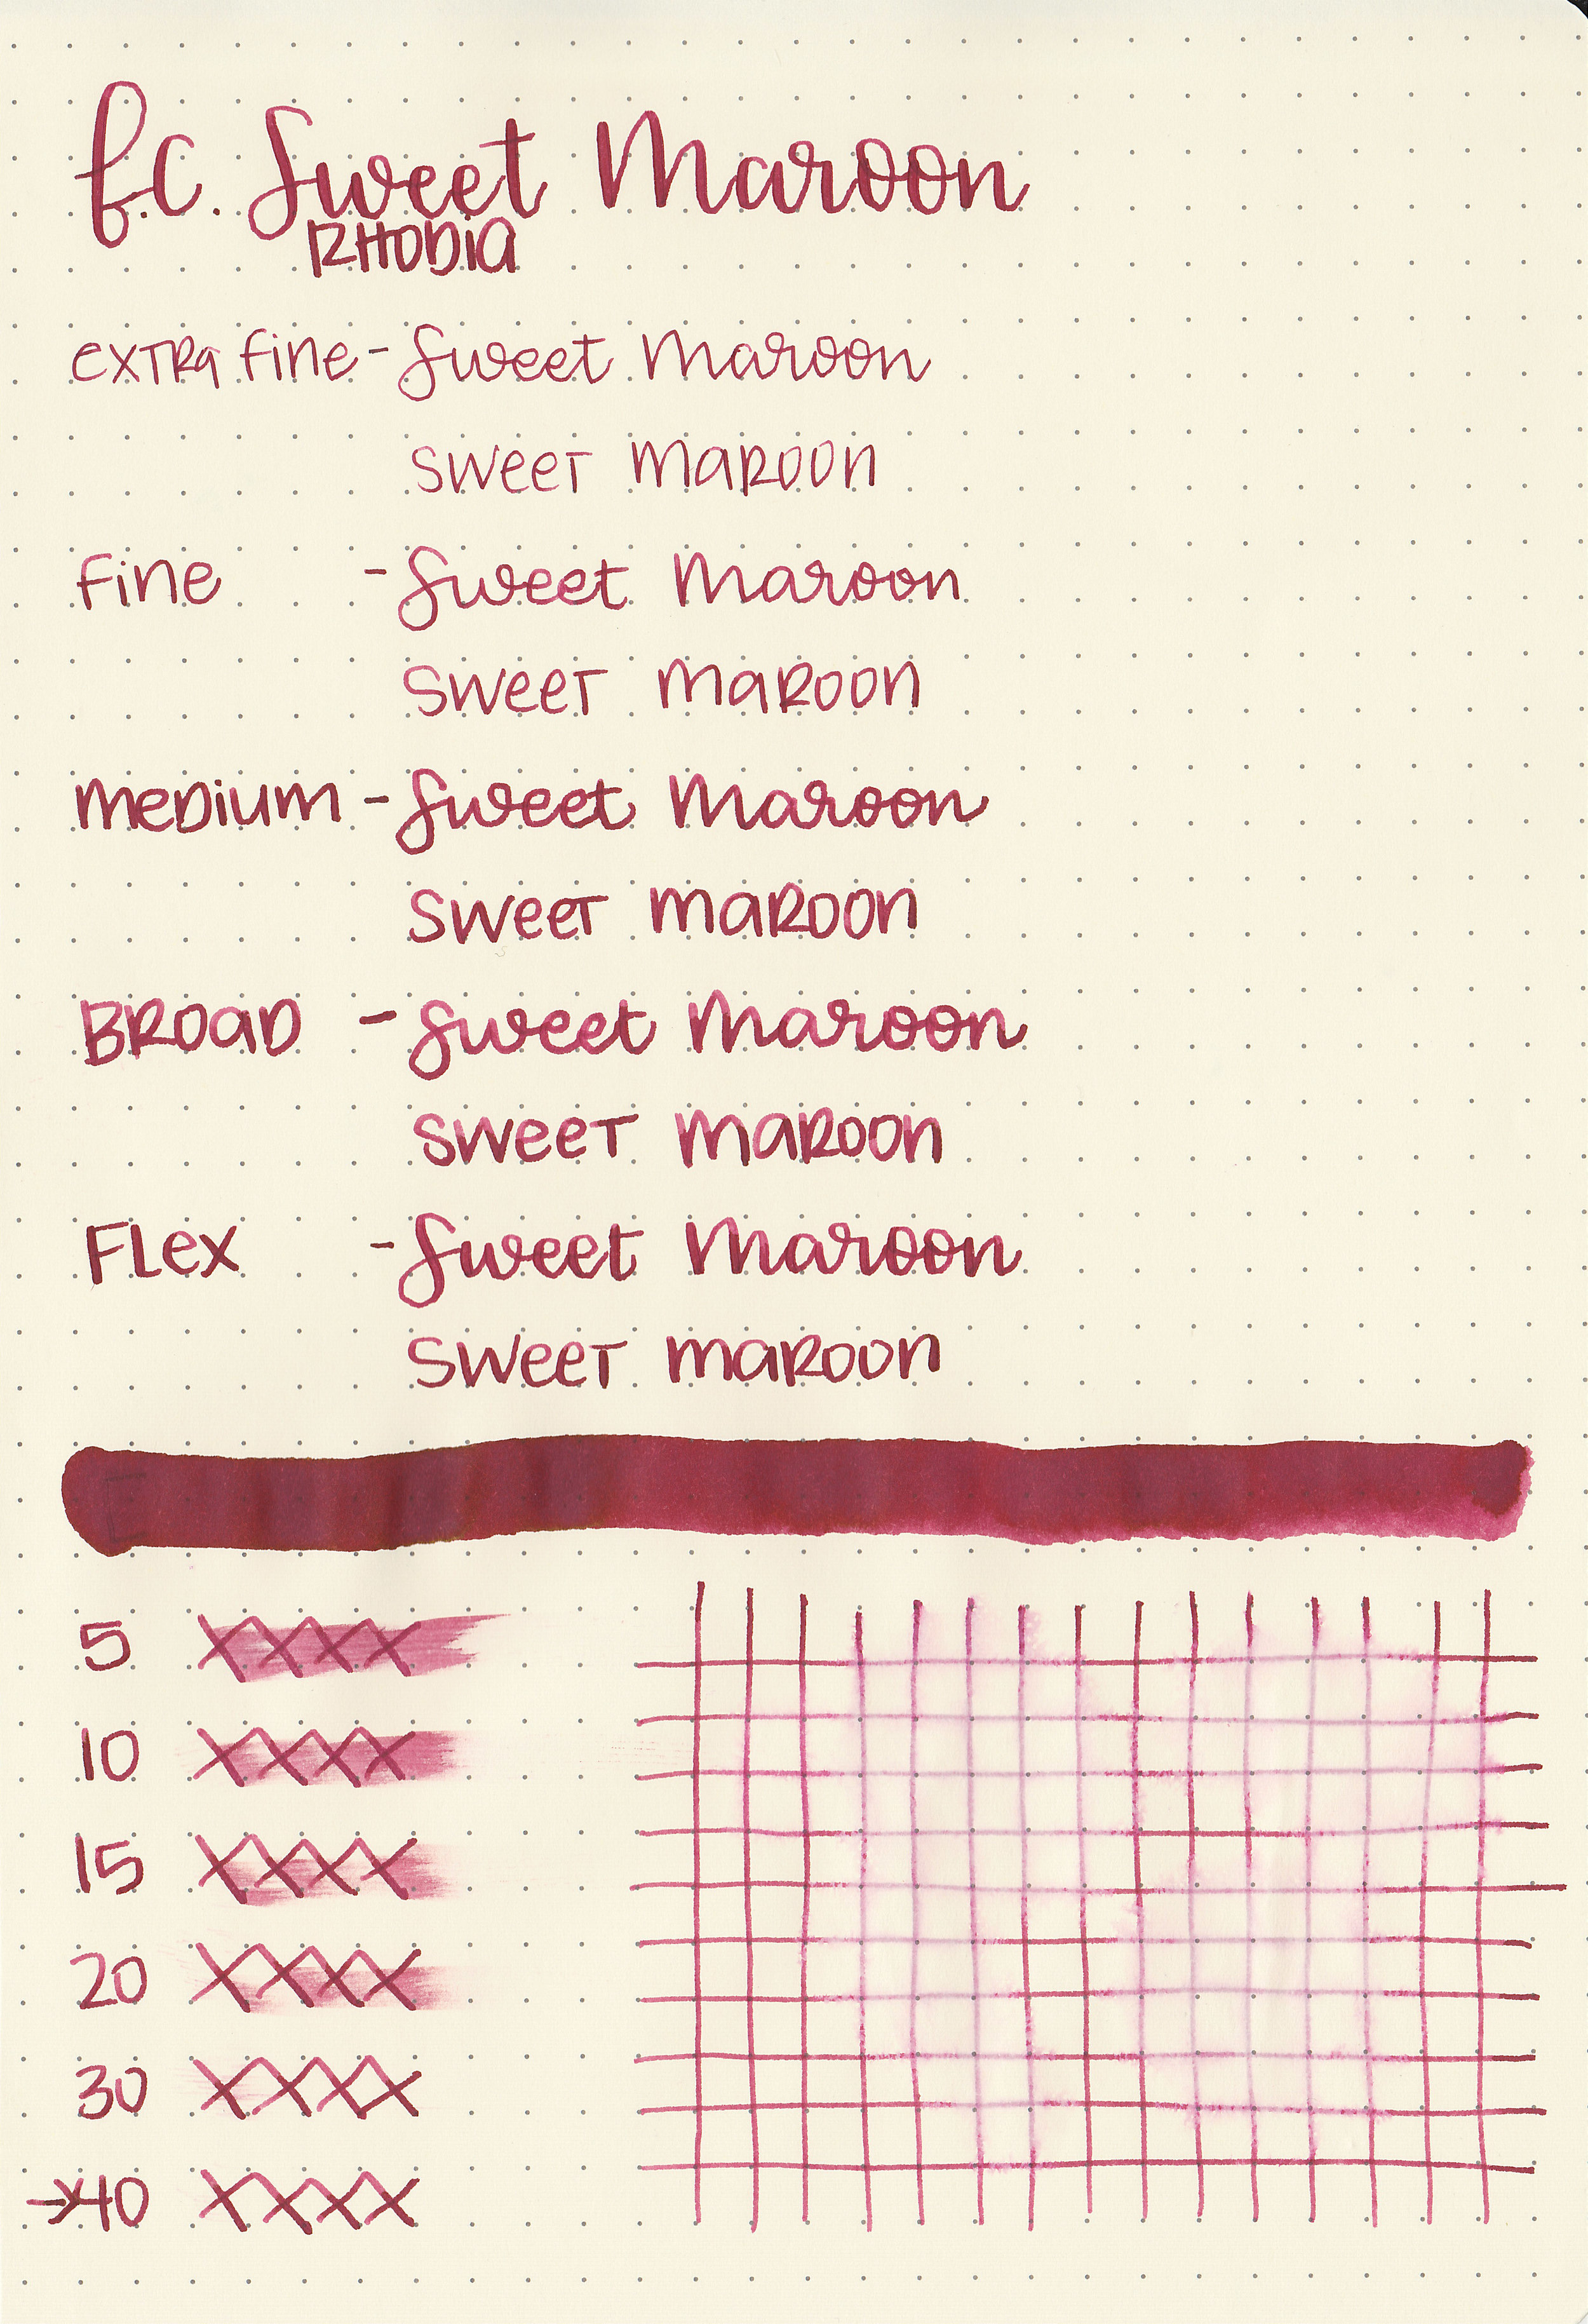 f.c. Sweet Maroon
RHODIA
extra fine - Sweet Maroon
Sweet Maroon
fine - Sweet Maroon
Sweet Maroon
Medium - Sweet Maroon
Sweet Maroon
Broad - Sweet Maroon
Sweet Maroon
Flex - Sweet Maroon
Sweet Maroon
5 XXXX
10 XXXX
15 XXXX
20 XXXX
30 XXXX
→40 XXXX